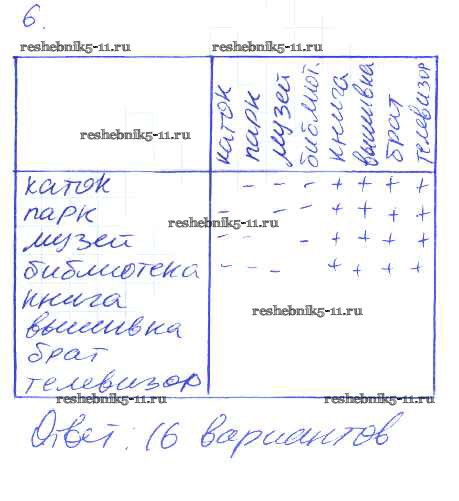 6.
reshebnik5-11.ru reshebnik5-11.ru
reshebnik5-11.ru
каток парк музей библиот. книга вышивка брат телевизор
каток - - - + + + +
парк - - - + + + +
reshebnik5-11.ru
музей - - - + + + +
библиотека - - - + + + +
книга
reshebnik5-11.ru
вышивка
брат
телевизор
reshebnik5-11.ru reshebnik5-11.ru
Ответ: 16 вариантов